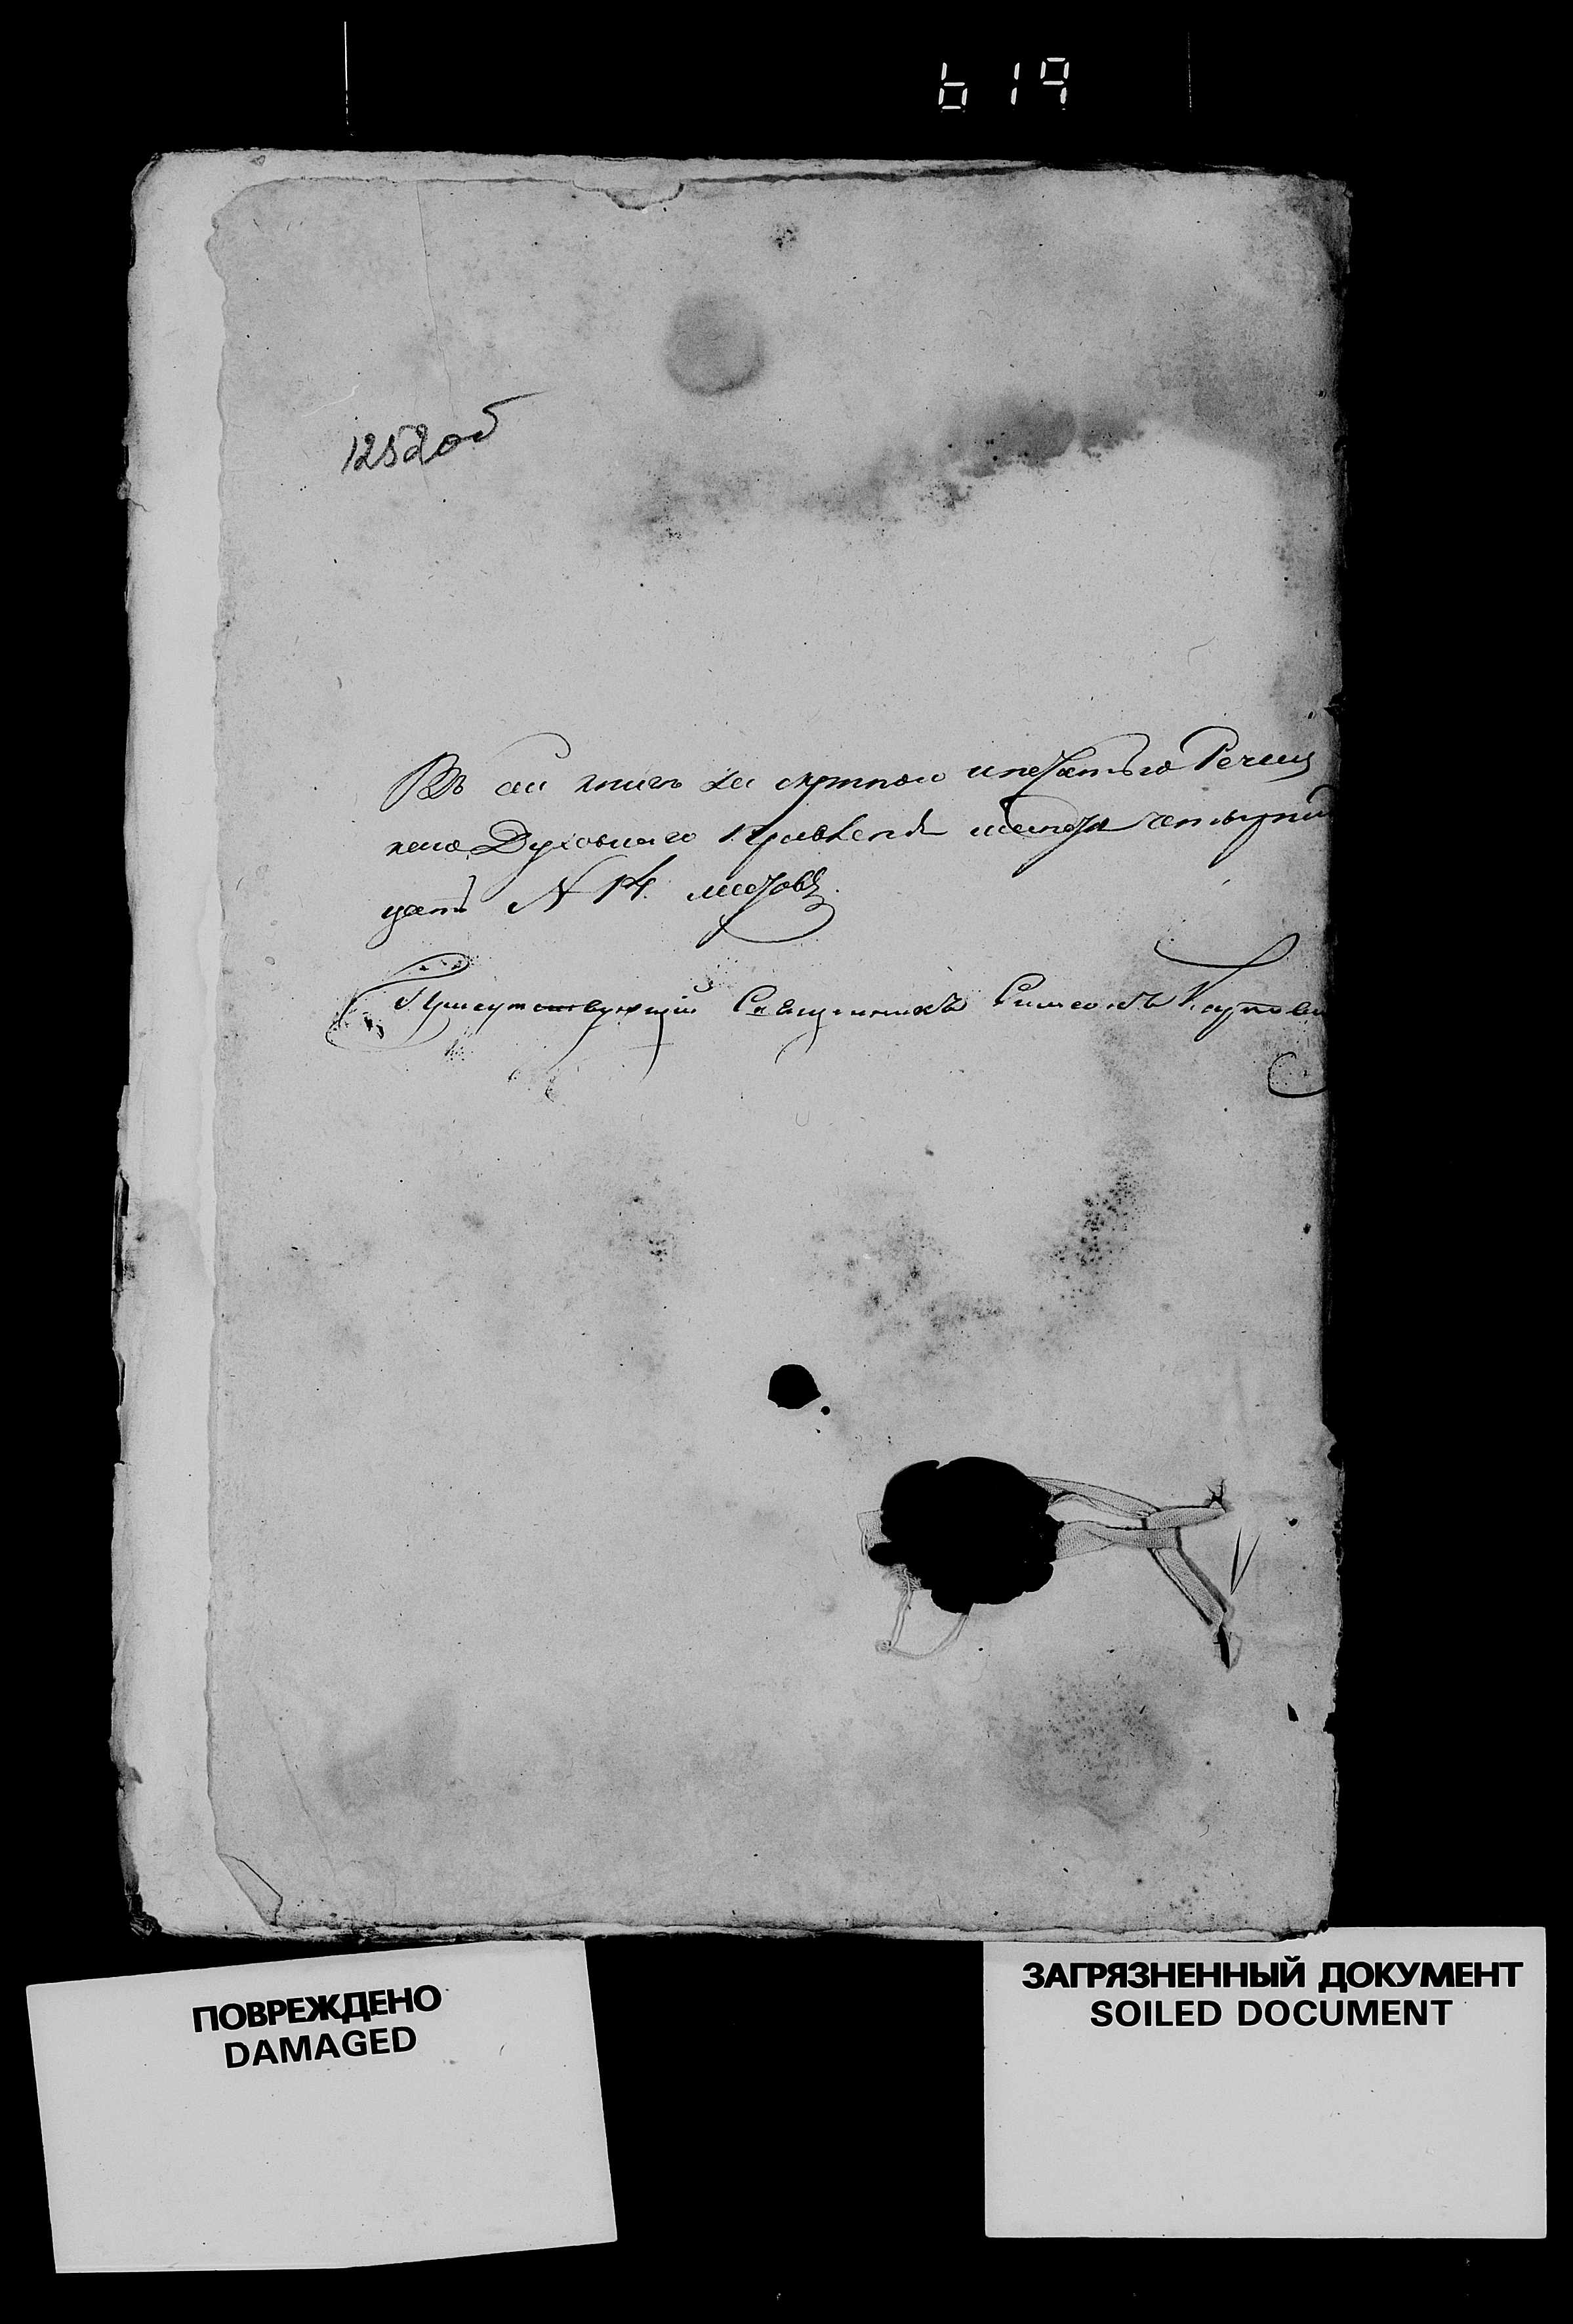 619
1252об
Въ сей книгѣ за скрепою и печатью Речиц
кого Духовнаго Правленія листовъ четырнад
цать N 14. листовъ.
Присутствующій Священникъ Симеонъ
ПОВРЕЖДЕНО
DAMAGED
ЗАГРЯЗНЕННЫЙ ДОКУМЕНТ
SOILED DOCUMENT